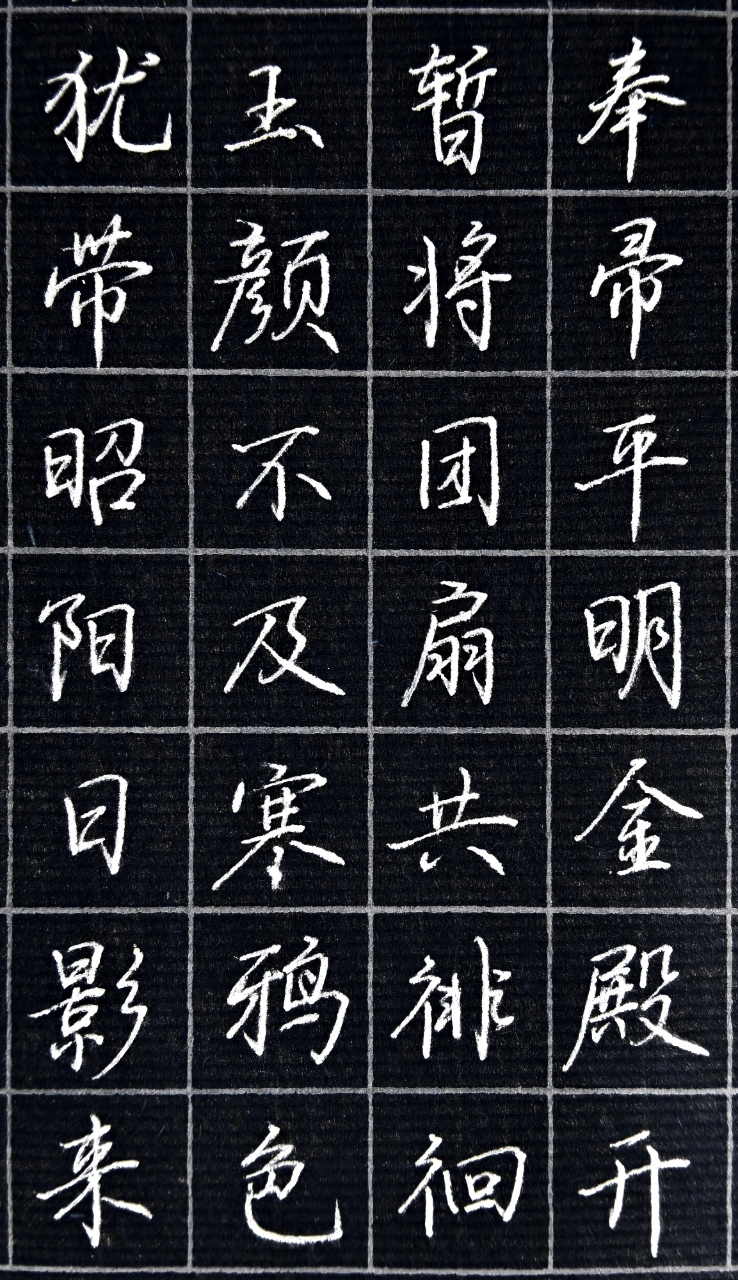 奉帚平明金殿开
暂将团扇共徘徊
玉颜不及寒鸦色
犹带昭阳日影来